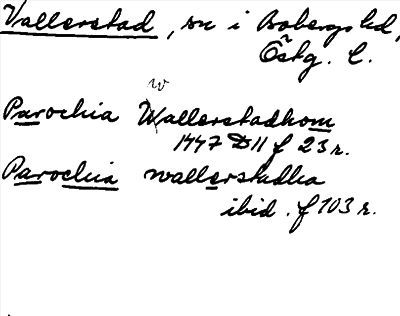 Vallerstad, sn i Bobergs hd,
Östg. l.
w
Parochia Wallerstadhom
1447 D 11 f 23 r.
Parochia wallerstadha
ibid. f 103 r.